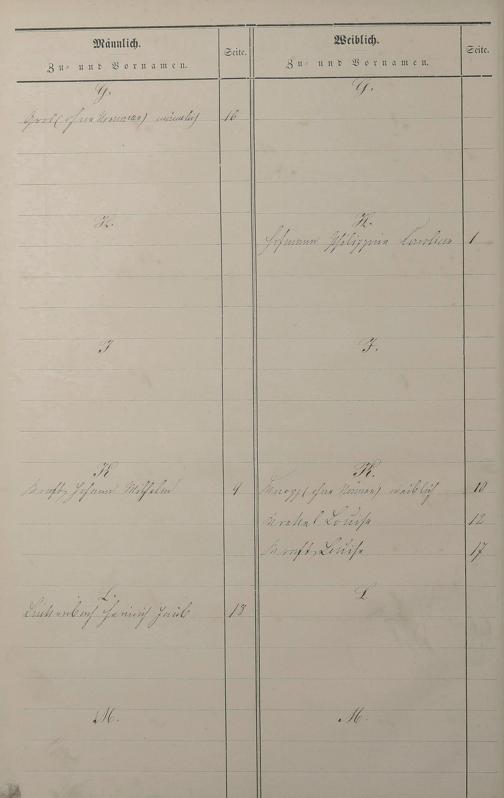 Männlich.
Zu- und Vornamen.
Seite.
G.
Groß (ohne Vornamen) männlich 16
H.
J
K
Kraft, Johann Wilhelm 9
L.
Luckenbach Heinrich Jacob 18
M.
Weiblich.
Zu- und Vornamen.
Seite.
G.
H.
Hofmann Philippine Caroline 1
J.
K.
Knapp (ohne Namen) weiblich 10
Louise 12
Kraft, Louise 17
L
M.